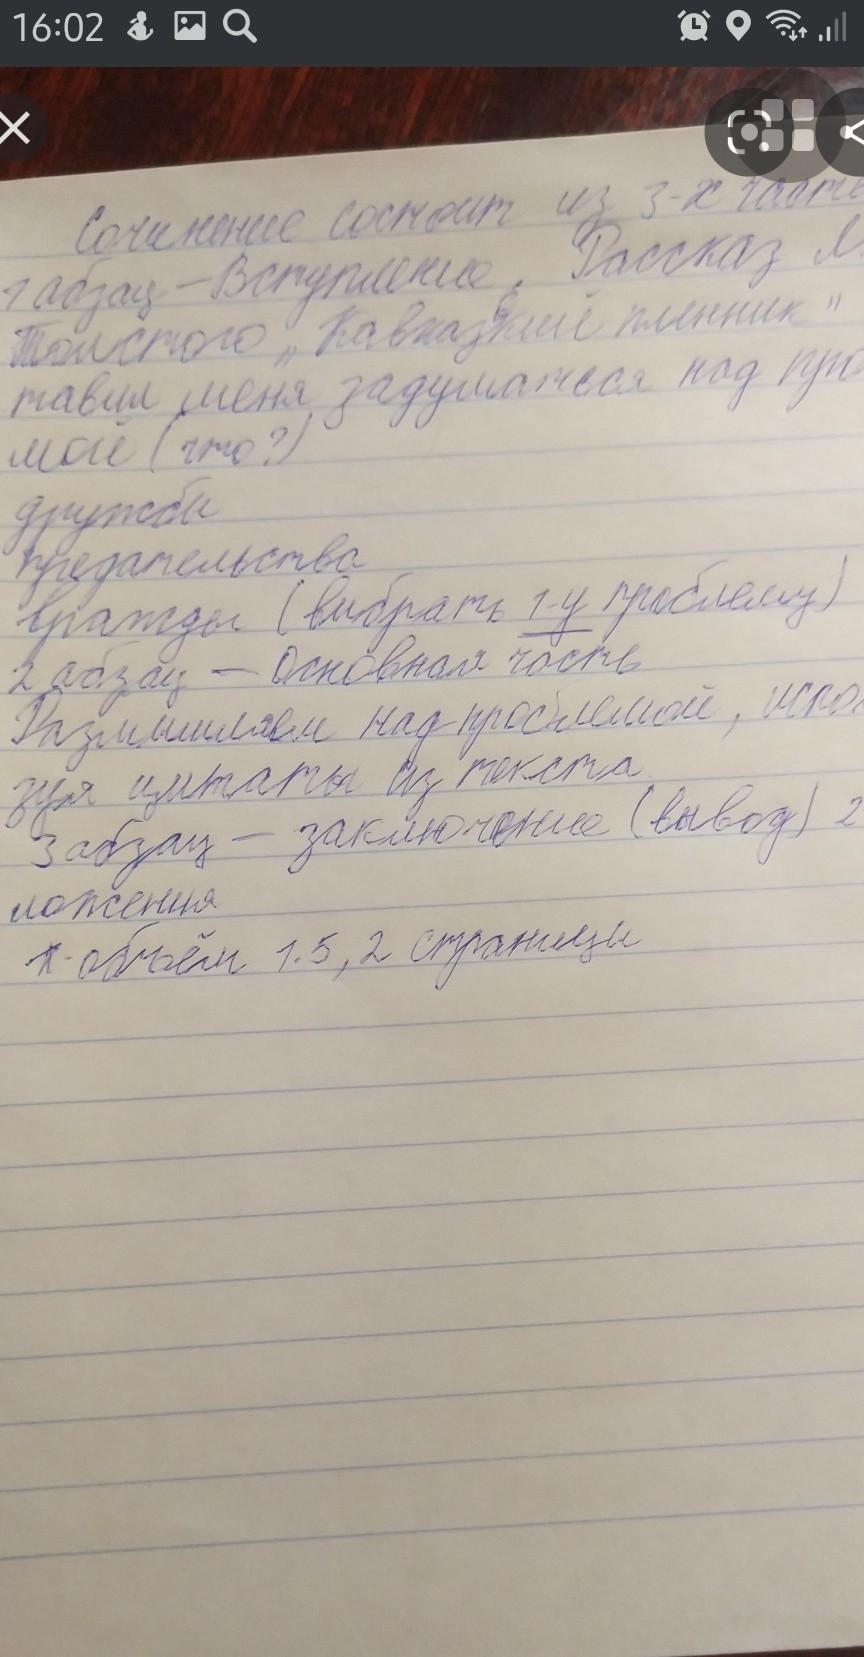 16:02
Сочинение состоит из 3-х часте
1 абзац - Вступление. Рассказ Л.
Толстого „Кавказский пленник"
тавил меня задуматься над про
мой (что?)
дружбы
предательства
вражды (выбрать 1-у проблему)
2 абзац - Основная часть
Размышляем над проблемой, испол
зуя цитаты из текста
3 абзац - заключение (вывод) 2
ложения
* объём 1.5, 2 страницы